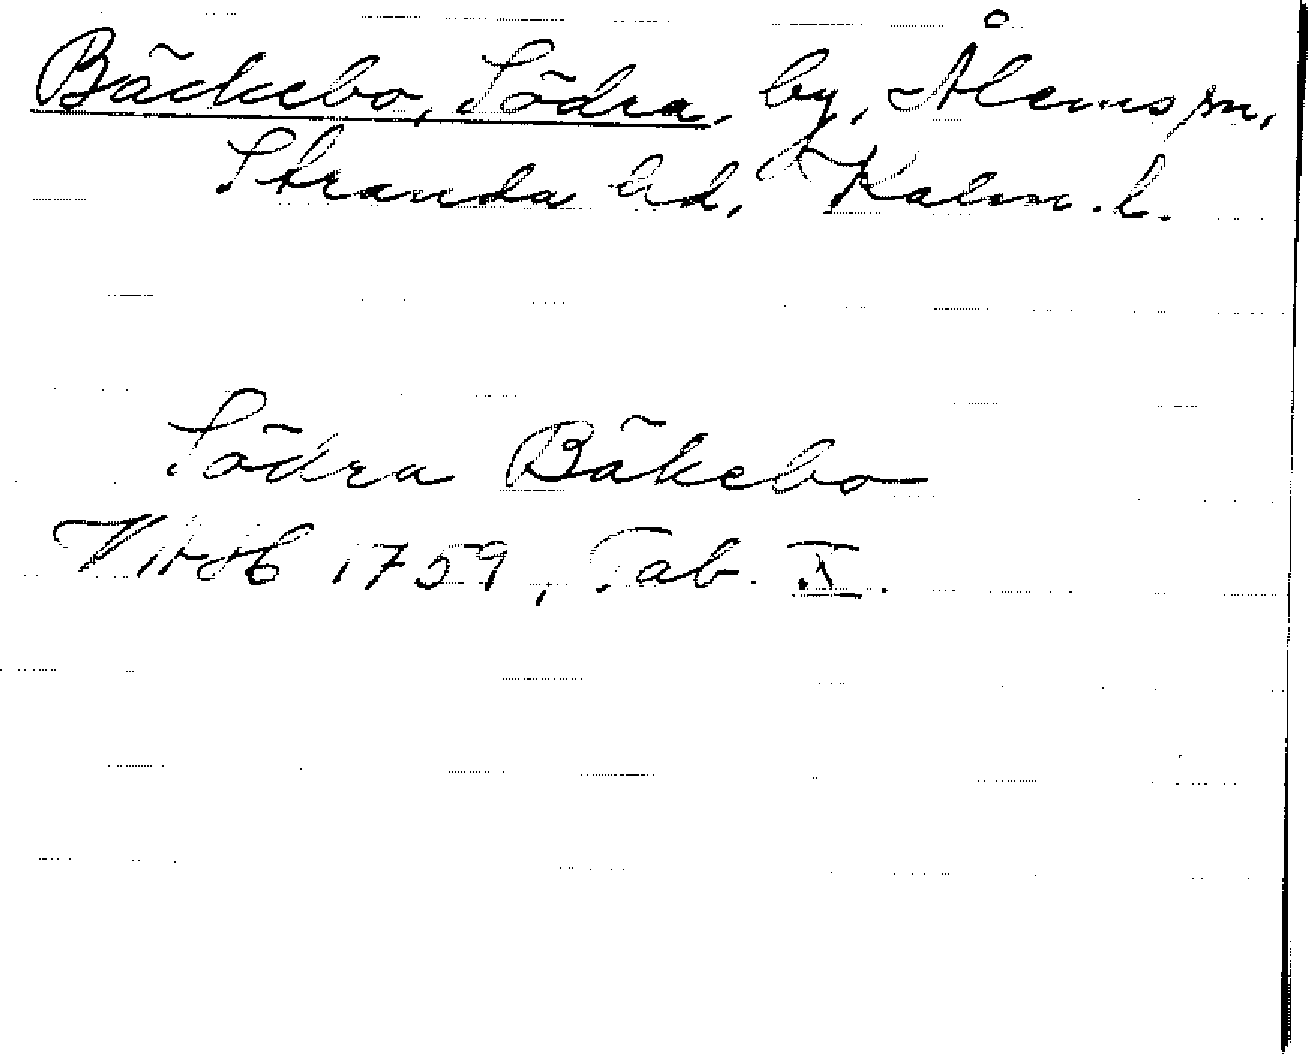 Bäckebo, Södra, by, Ålems sn,
Stranda hd, Kalm. l.
Södra Bäkebo
1759, Tab. X.